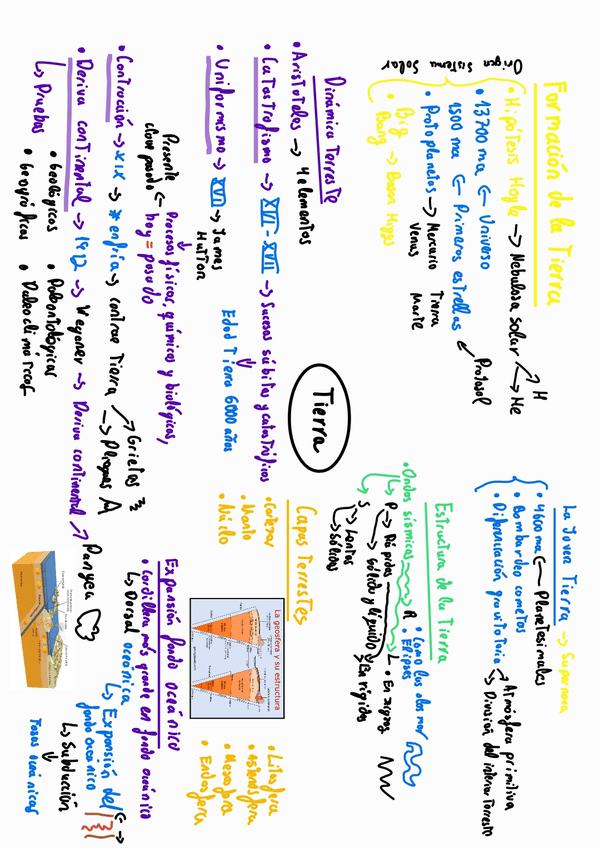 Formación de la Tierra
Origen Sistema Solar
• Hipótesis Hoyle → Nebulosa solar → H
→ He
• 13700 ma ← Universo
1500 ma ← Primeras estrellas
Protosol
• Protoplanetas → Mercurio Tierra
Venus Marte
• Big Bang → Boson Higgs
La Joven Tierra → Supernova
• 4600 ma ← Planetesimales
• Bombardeo cometas
• Diferenciación gravitatoria → Atmósfera primitiva
→ División del interior Terrestre
Tierra
Dinámica Terrestre
• Aristóteles → 4 elementos
• Catastrofismo → XVI - XVII → Sucesos súbitos y catastróficos
Edad Tierra 6000 años
• Uniformismo → XVIII → James Hutton
Procesos físicos, químicos y biológicos,
hoy = pasado
Presente clave pasado
• Contracción → XIX → * enfría → contrae Tierra → Grietas
→ Pliegues
• Deriva continental → 1912 → Wegener → Deriva continental → Pangea
↳ Pruebas
• Geológicas • Paleontológicas
• Geográficas
Estructura de la Tierra
• Ondas sísmicas
P → Rápidas
→ Sólido y líquido
S → Lentas
→ Sólidos
R • Elipses
• Como las olas mar
L • En zigzag
Capas Terrestres
• Corteza
• Manto
• Núcleo
La geosfera y su estructura
• Litosfera
• Astenosfera
• Mesosfera
• Endosfera
Expansión fondo Oceánico
• Cordillera más grande en fondo oceánico
↳ Dorsal oceánica
↳ Expansión del fondo oceánico
↳ Subducción
Fosas oceánicas